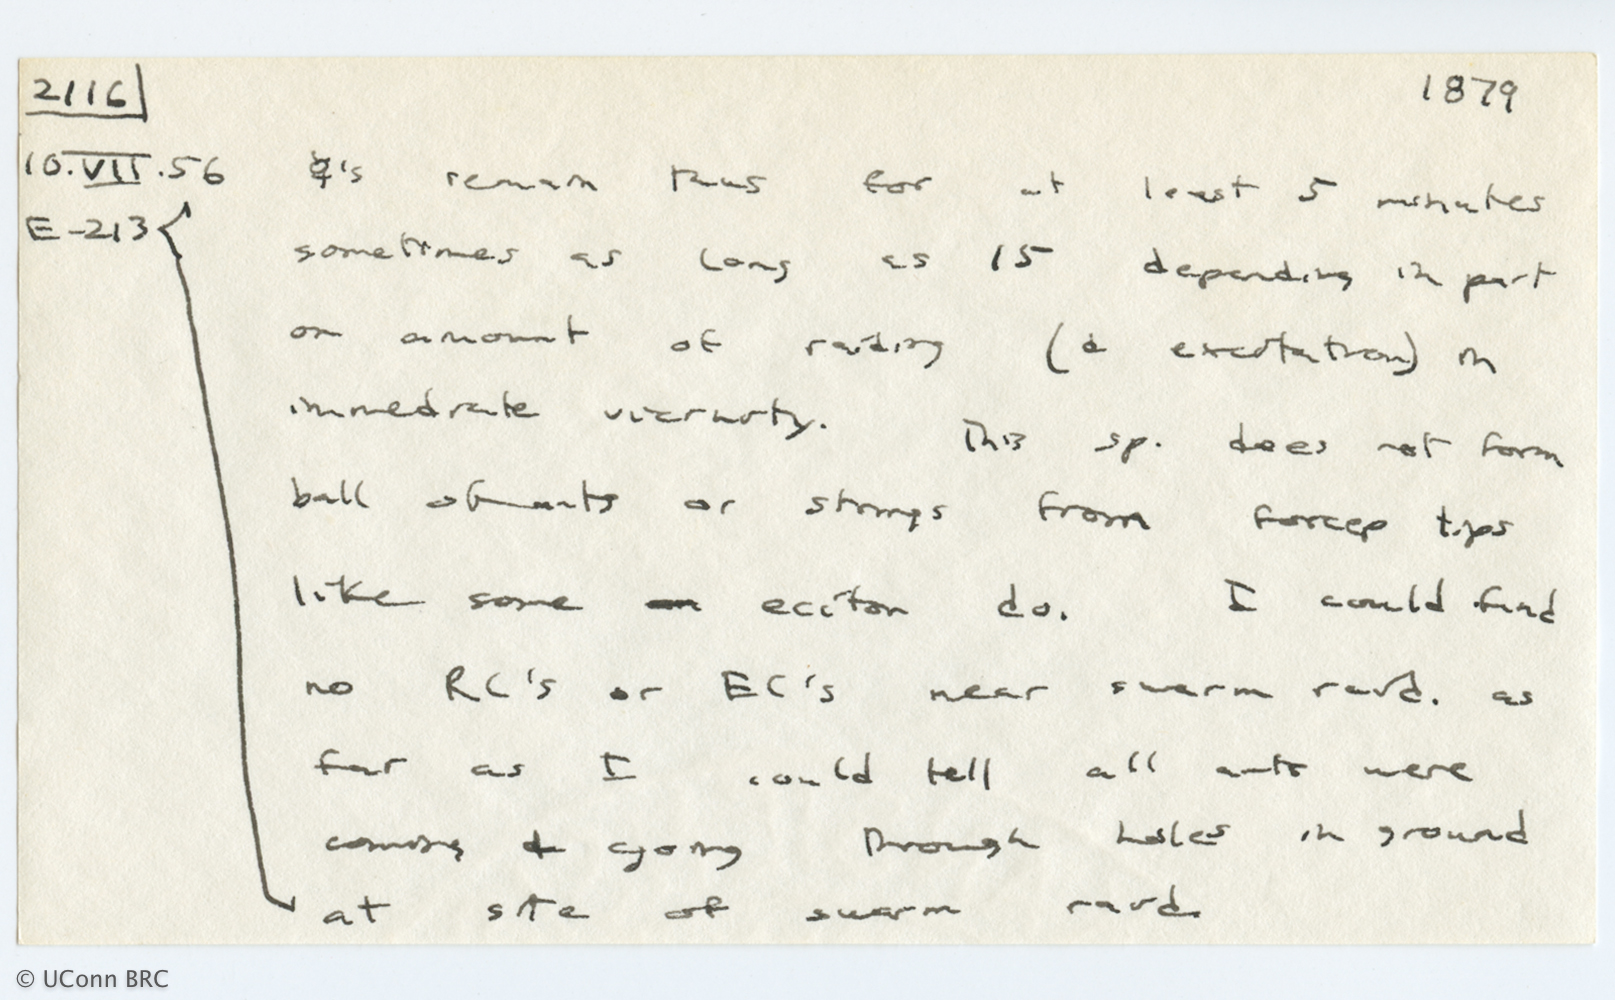 2116
1879
10.VII.56 ☿'s remain thus for at least 5 minutes
E-213 sometimes as long as 15 depending in part
on amount of raiding (& excitation) in
immediate vicinity. This sp. does not form
ball of ants or strings from forcep tips
like some eciton do. I could find
no RC's or EC's near swarm raid. as
far as I could tell all ants were
coming & going through holes in ground
at site of swarm raid.
© UConn BRC